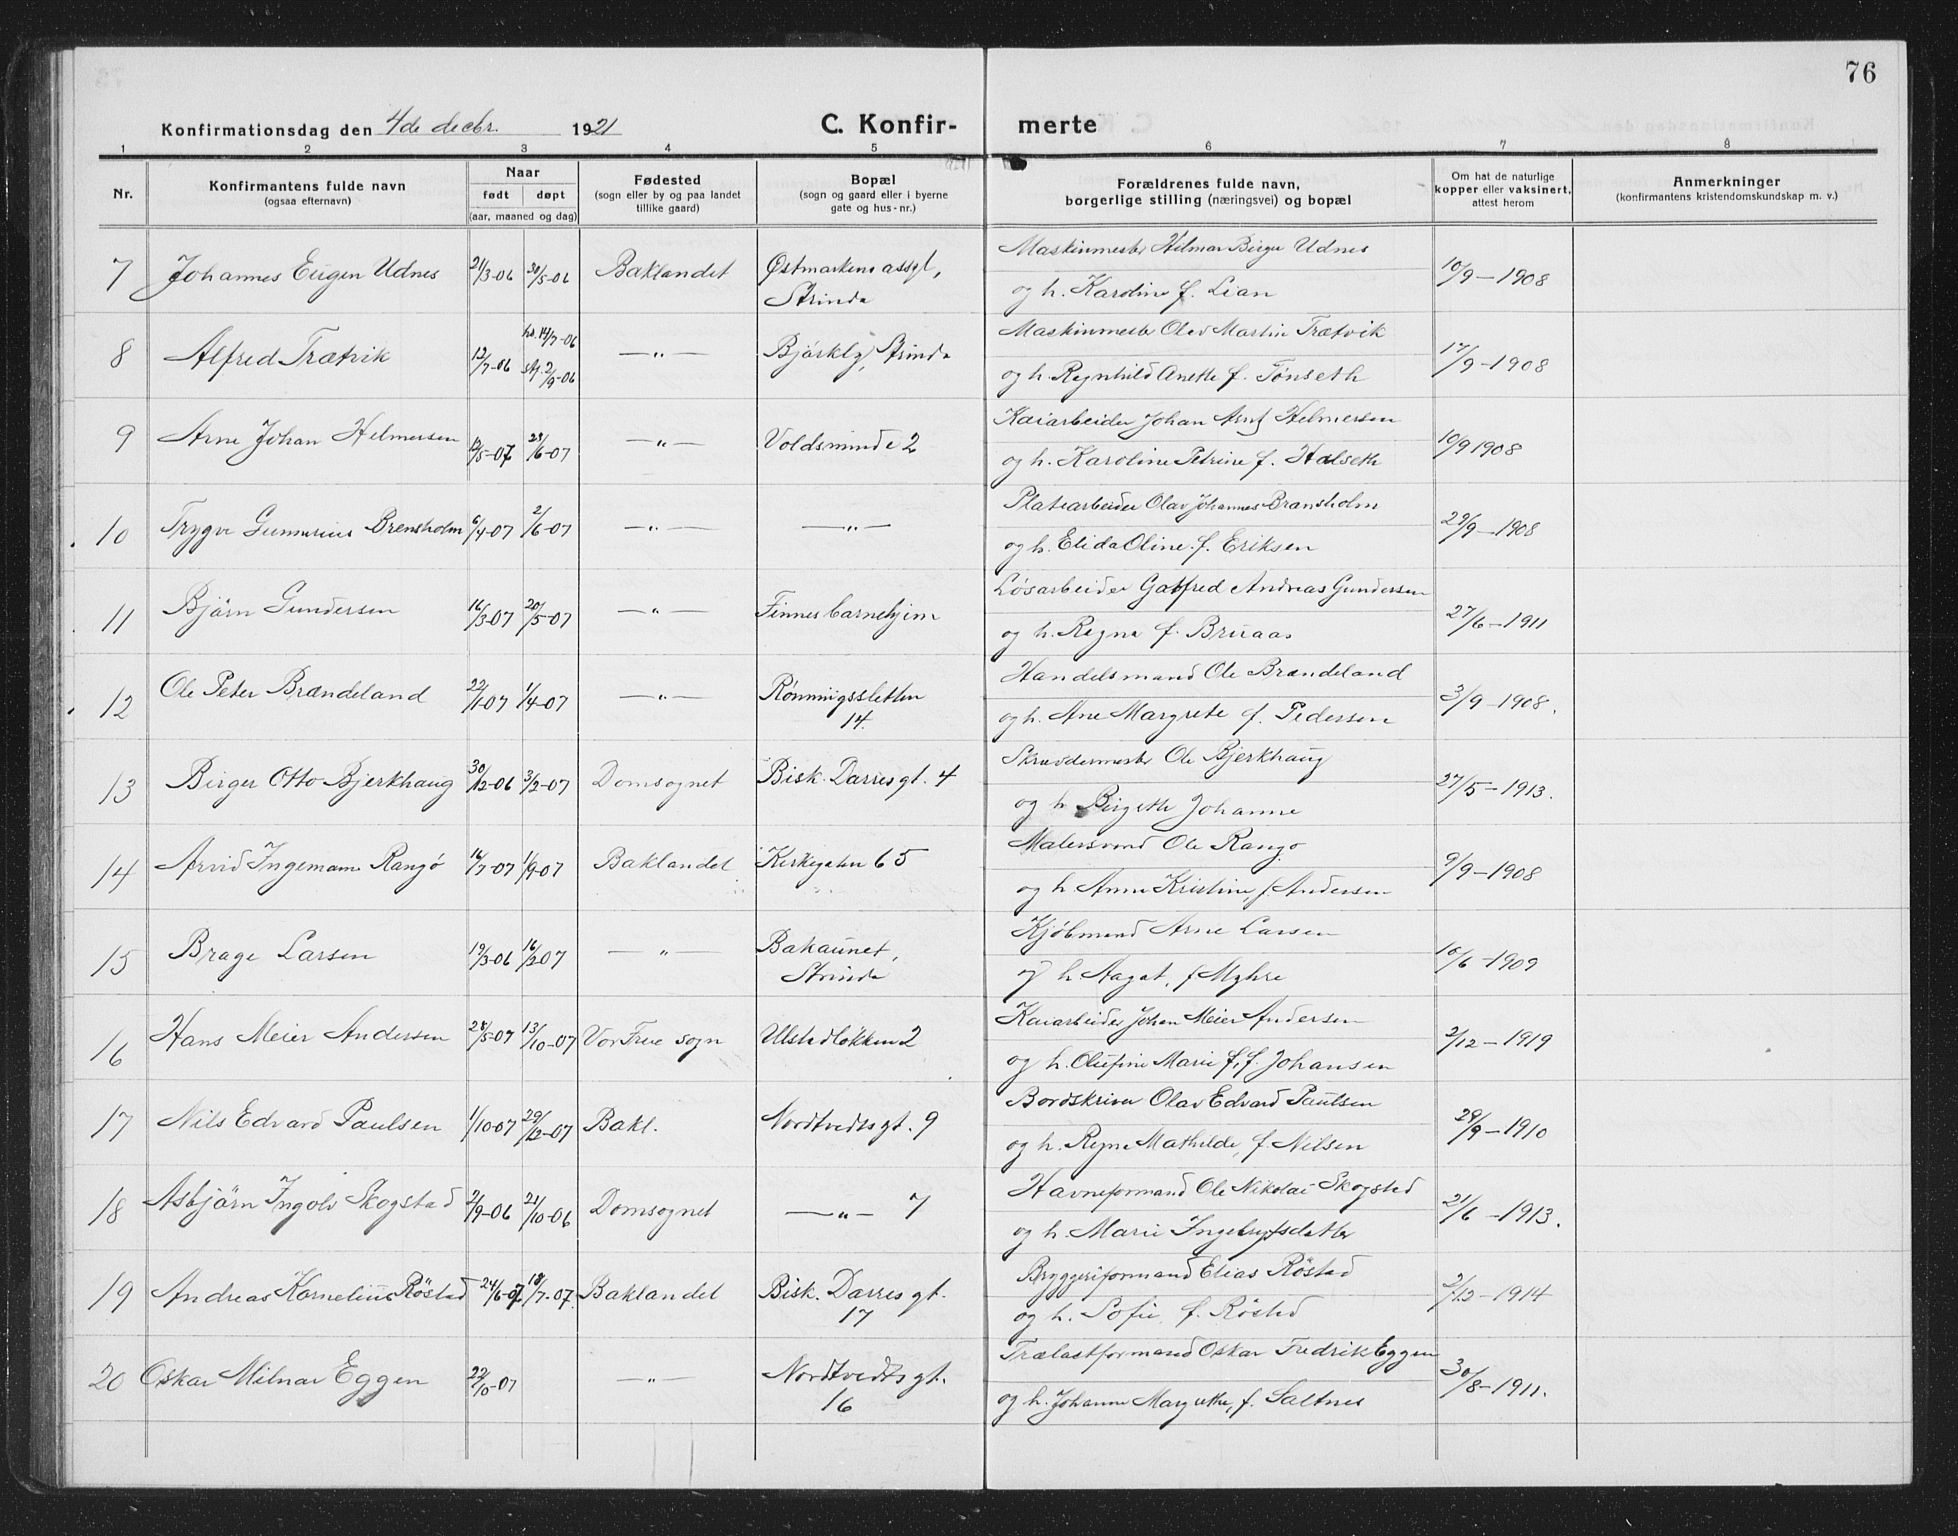 76
Konfirmationsdag den 4de decbr. 1921 C. Konfir- merte
1 2 3 4 5 6 7 8
Nr. Konfirmantens fulde navn (ogsaa efternavn) Naar født døpt (aar, maaned og dag) Fødested (sogn eller by og paa landet tillike gaard) Bopæl (sogn og gaard eller i byerne gate og hus-nr.) Forældrenes fulde navn, borgerlige stilling (næringsvei) og bopæl Om hat de naturlige kopper eller vaksinert, attest herom Anmerkninger (konfirmantens kristendomskundskap m. v.)
7 Johannes Eugen Udnes 21/3-06 30/5-06 Baklandet Østmarkens asyl, Maskinmester Hilmar Birger Udnes 10/9-1908
Strinda og h. Karoline f. Lian
8 Alfred Trætvik 12/7-06 hd. 14/7-06 —„— Bjørkly, Strinda Maskinmester Olav Martin Trætvik 17/9-1908
stf. 2/9-06 og h. Regnhild Anette f. Tønseth
9 Arne Johan Helmersen 12/5-07 23/6-07 —„— Voldsminde 2 Kaiarbeider Johan Arnt Helmersen 10/9 1908
og h. Karoline Petrine f. Halseth
10 Trygve Gunnerius Brensholm 6/4-07 2/6-07 —„— —„— Platearbeider Olav Johannes Brensholm 29/9-1908
og h. Elida Oline f. Eriksen
11 Bjørn Gundersen 16/3-07 20/5-07 —„— Finnes barnehjem Løsarbeider Gotfred Andreas Gundersen 27/6-1911
og h. Regna f. Bruaas
12 Ole Peter Brændeland 22/1-07 1/4-07 —„— Rønningssletten Handelsmand Ole Brændeland 3/9-1908.
14. og h. Ane Margrete f. Pedersen
13 Birger Otto Bjerkhaug 30/12-06 3/2-07 Domsognet Bisk. Darres gt. 4 Skræddermester Ole Bjerkhaug 27/5-1913.
og h. Birgith Johanne
14 Arvid Ingemann Rangø 16/7-07 1/9-07 Baklandet Kirkegaten 65 Malersvend Ole Rangø 9/9-1908
og h Anna Kristine, f. Andersen
15 Brage Larsen 19/3-06 16/2 07 —„— Bakaunet, Kjøbmand Arne Larsen 10/6-1909
Strinda og h Aagot, f Myhre
16 Hans Meier Andersen 28/5-07 13/10-07 Vor Frue sogn Ulstadløkken 2 Kaiarbeider Johan Meier Andersen 2/12-1919
og h. Olufine Marie f. f. Johansen
17 Nils Edvard Paulsen 1/10-07 29/12-07 Bakl. Nordtvedts gt. 9 Bordskriver Olav Edvard Paulsen 29/9-1910
og h. Regna Mathilde, f. Nilsen
18 Asbjørn Ingolv Skogstad 2/9-06 21/10-06 Domsognet —„— 7 Havneformand Ole Nikolai Skogstad 21/6-1913.
og h. Marie Ingebrigtsdatter
19 Andreas Kornelius Røstad 24/6-07 18/7-07. Baklandet Bisk. Darres gt. Bryggeriformand Elias Røstad 2/12-1914
17 og h. Sofie f. Røsted
20 Oskar Milnar Eggen 22/10-07 —„— Nordtvedts gt. Trælastformand Oskar Fredrik Eggen 30/8-1911.
16 og h. Johanna Margrethe, f. Saltnes